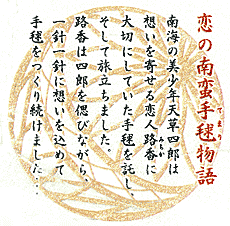 恋の南蛮手毬物語
てまり
南海の美少年天草四郎は
想いを寄せる恋人路香に
みちか
大切にしていた手毬を託し、
そして旅立ちました。
路香は四郎を偲びながら
一針一針に想いを込めて
手毬をつくり続けました…